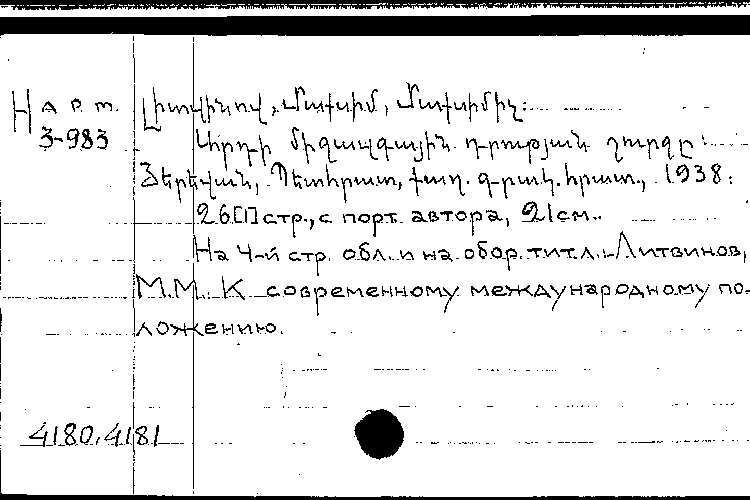 На арт.
З-983
Լիտվինով, Մաքսիմ, Մաքսիմիչ:
Արդի միջազգային դրության շուրջը:
Յերեվան, Պետհրատ, քաղ. գրակ. հրատ., 1938:
26[1] стр., с порт. автора, 21 см..
На 4-й стр. обл. и на обор. тит. л.: Литвинов,
М.М. К современному международному по-
ложению.
4180, 4181